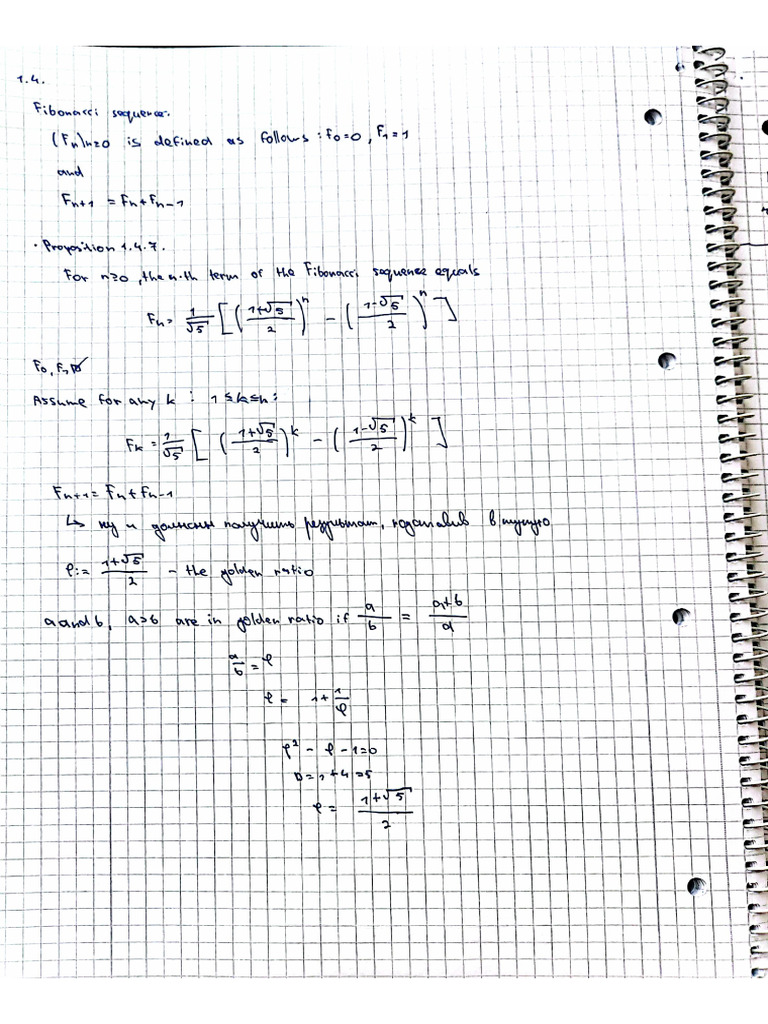 1.4.
Fibonacci sequence.
(Fn)n≥0 is defined as follows: F0=0, F1=1
and
Fn+1 = Fn+Fn-1
· Proposition 1.4.7.
For n≥0, the n-th term of the Fibonacci sequence equals
Fn= 1/√5 [ ( (1+√5)/2 )^n - ( (1-√5)/2 )^n ]
F0, F1
Assume for any k : 1≤k≤n:
Fk = 1/√5 [ ( (1+√5)/2 )^k - ( (1-√5)/2 )^k ]
Fn+1 = Fn + Fn-1
↳ ну и должны получить результат, подставив
φ:= (1+√5)/2 - the golden ratio
a and b, a>b are in golden ratio if a/b = (a+b)/a
a/b = φ
φ = 1+1/φ
φ² - φ - 1=0
D=1+4=5
φ = (1+√5)/2